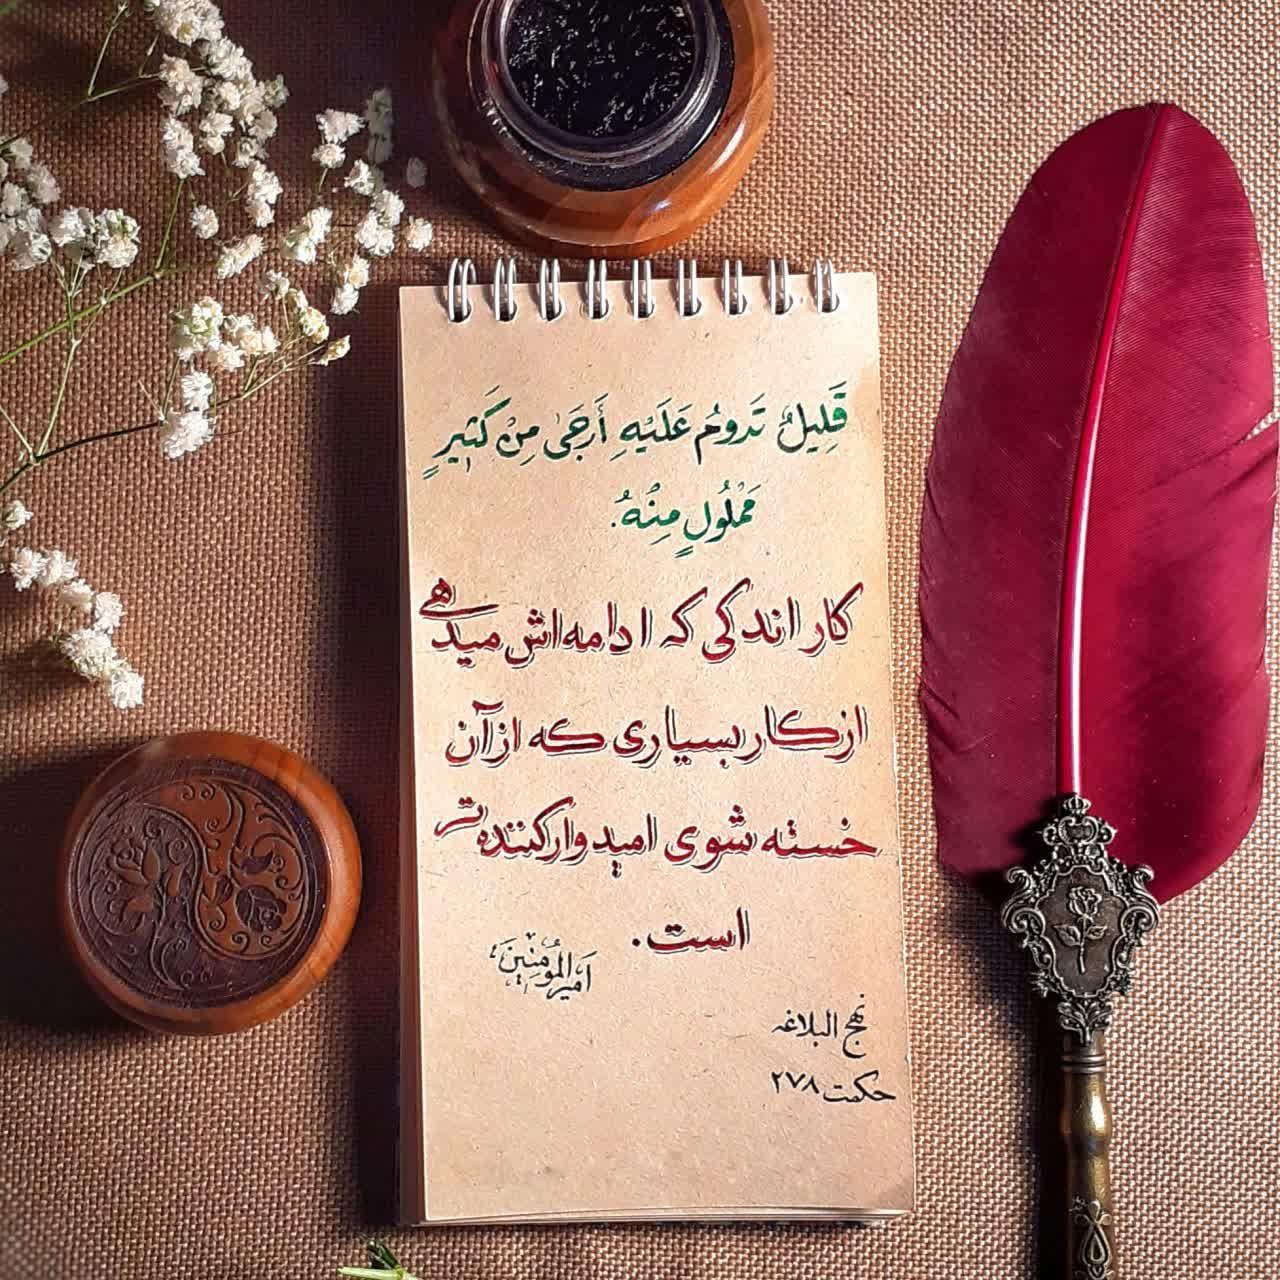 قَلِیلٌ تَدومُ عَلَیْهِ أَرجَیٰ مِنْ کَثیرٍ
مَمْلُولٍ مِنْهُ.
کار اندکی که ادامه‌اش میدهی
از کار بسیاری که از آن
خسته شوی امیدوارکننده‌تر
است.
اَمیرالمُومِنین
نهج البلاغه
حکمت ۲۷۸